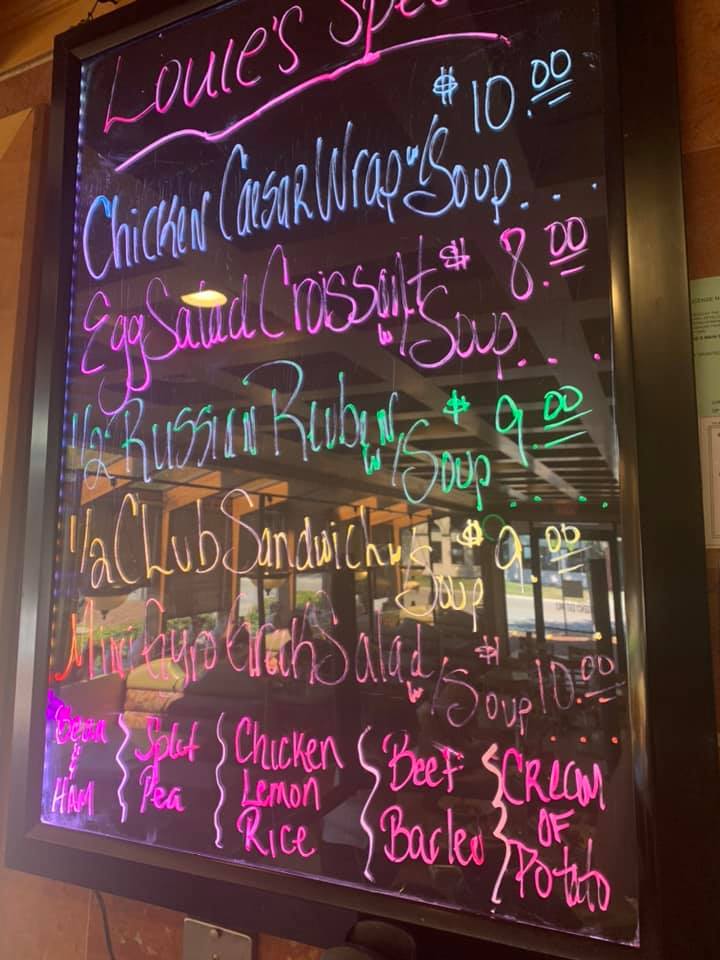 Louie's
$10.00
Chicken Caesar Wrap w/Soup....
$8.00
Egg Salad Croissant w/Soup....
1/2 Russian Reuben w/Soup $9.00
1/2 Club Sandwich w/Soup $9.00
Mini Gyro Greek Salad w/Soup $10.00
Bean & Ham
Split Pea
Chicken Lemon Rice
Beef Barley
Cream OF Potato